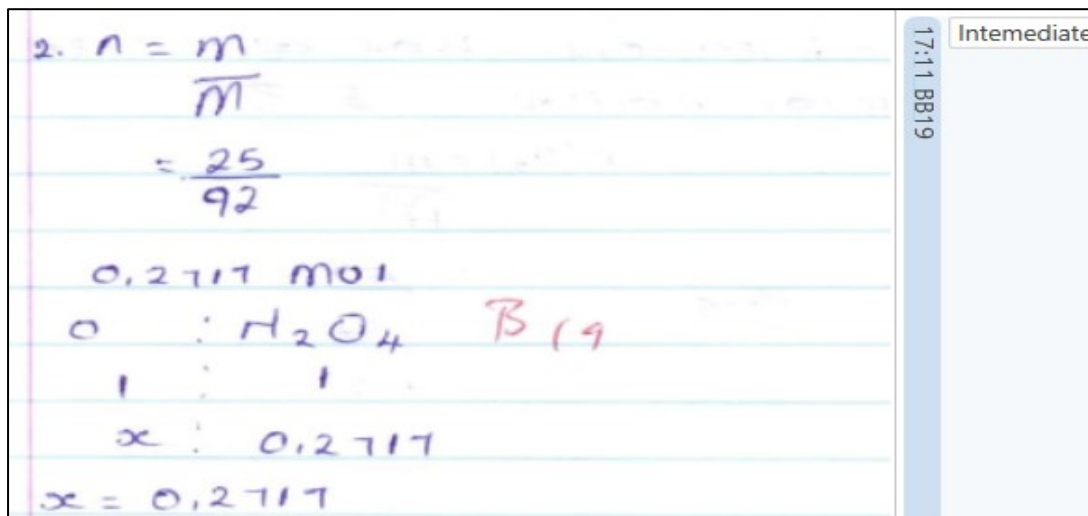 2. n = m
m
= 25
92
0,2717 mol
O : N2O4 B19
1 : 1
x : 0,2717
x = 0,2717
17:11 BB19
Intemediate